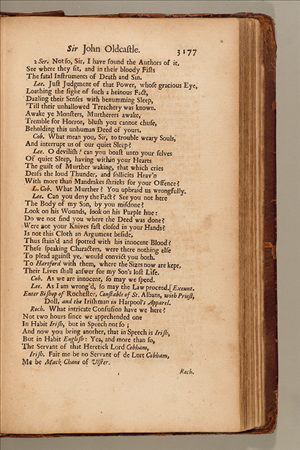 Sir John Oldcastle. 3177
2 Ser. Not so, Sir, I have found the Authors of it.
See where they sit, and in their bloody Fists
The fatal Instruments of Death and Sin.
Lee. Just Judgment of that Power, whose gracious Eye,
Loathing the sight of such a heinous Fact,
Dazling their Senses with benumming Sleep,
'Till their unhallowed Treachery was known.
Awake ye Monsters, Murtherers awake,
Tremble for Horror, blush you cannot chuse,
Beholding this unhuman Deed of yours.
Cob. What mean you, Sir, to trouble weary Souls,
And interrupt us of our quiet Sleep?
Lee. O devilish! can you boast unto your selves
Of quiet Sleep, having within your Hearts
The guilt of Murther waking, that which cries
Deafs the loud Thunder, and sollicits Heav'n
With more than Mandrakes shrieks for your Offence?
L. Cob. What Murther? You upbraid us wrongfully.
Lee. Can you deny the Fact? See you not here
The Body of my Son, by you misdone?
Look on his Wounds, look on his Purple hue:
Do we not find you where the Deed was done?
Were not your Knives fast closed in your Hands?
Is not this Cloth an Argument beside,
Thus stain'd and spotted with his innocent Blood?
These speaking Characters, were there nothing else
To plead against ye, would convict you both.
To Hartford with them, where the Sizes now are kept,
Their Lives shall answer for my Son's lost Life.
Cob. As we are innocent, so may we speed.
Lee. As I am wrong'd, so may the Law proceed. [Exeunt.
Enter Bishop of Rochester, Constable of St. Albans, with Priest,
Doll, and the Irishman in Harpool's Apparel.
Roch. What intricate Confusion have we here?
Not two hours since we apprehended one
In Habit Irish, but in Speech not so;
And now you bring another, that in Speech is Irish,
But in Habit English: Yea, and more than so,
The Servant of that Heretick Lord Cobham.
Irish. Fait me be no Servant of de Lort Cobham,
Me be Mack Chane of Ulster.
Roch.